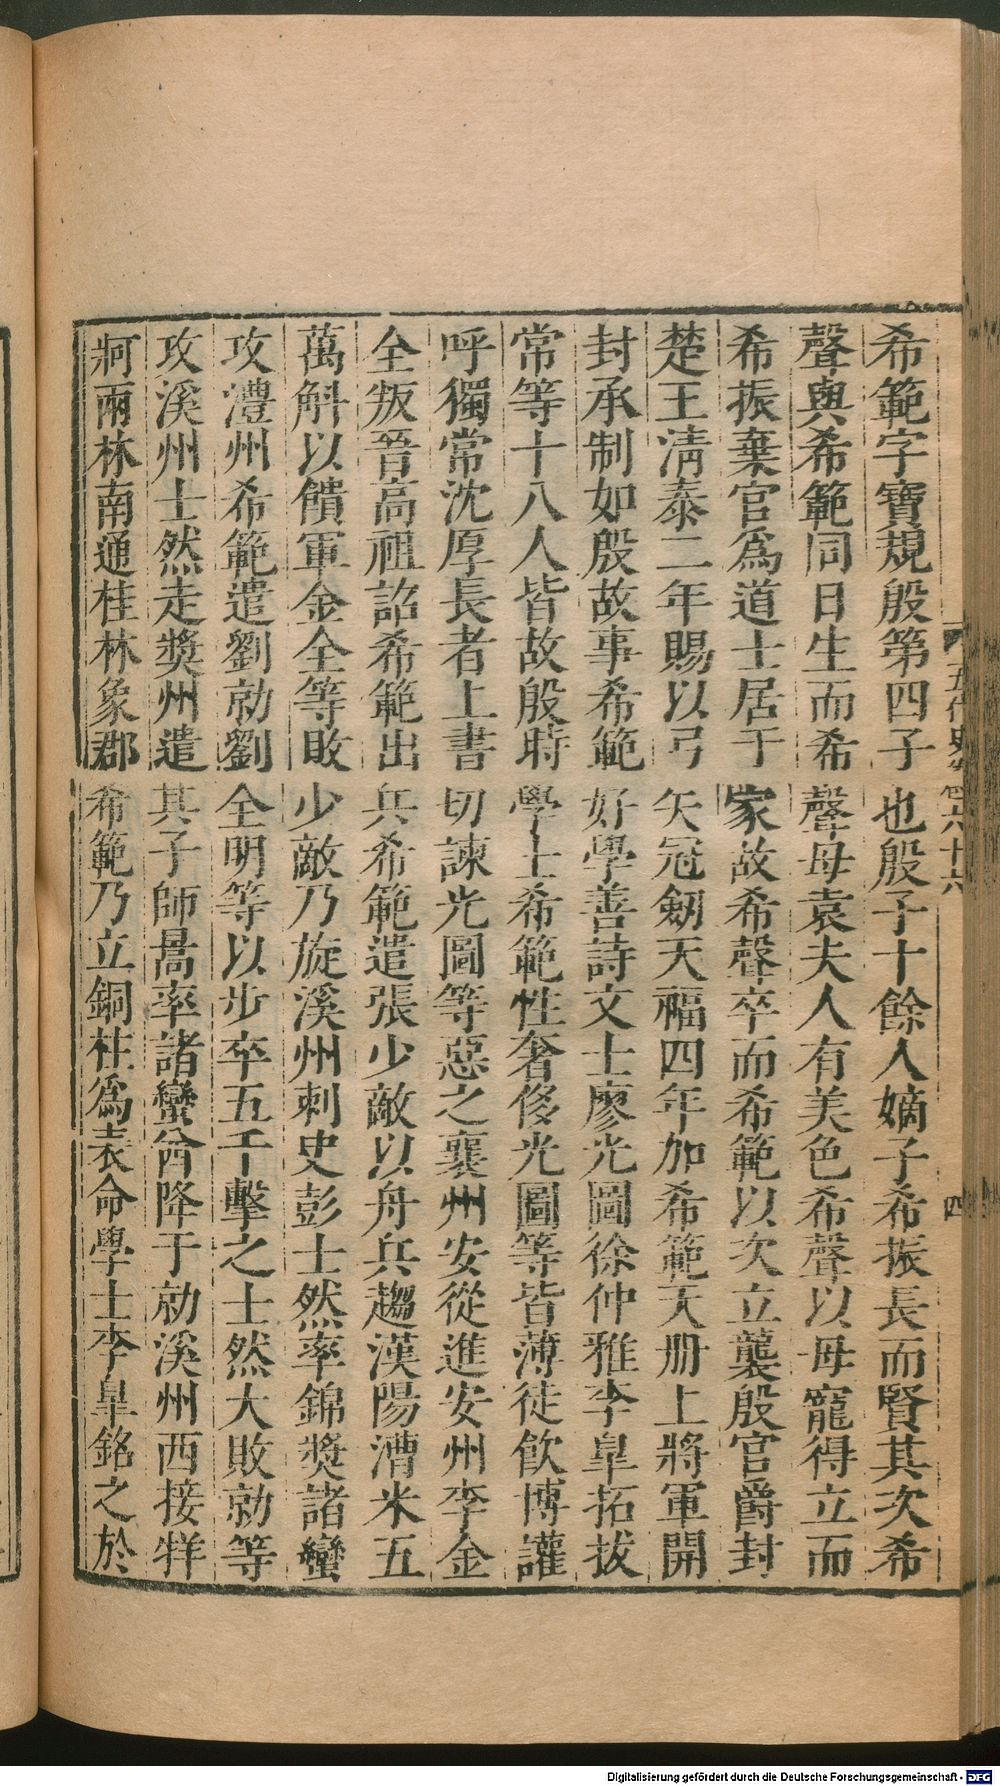 希範字寶規殷第四子也殷子十餘人嫡子希振長而賢其次希
聲與希範同日生而希聲母袁夫人有美色希聲以母寵得立而
希振棄官爲道士居于家故希聲卒而希範以次立襲殷官爵封
楚王清泰二年賜以弓矢冠劒天福四年加希範天册上將軍開
封承制如殷故事希範好學善詩文士廖光圖徐仲雅李臯拓拔
常等十八人皆故殷時學士希範性奢侈光圖等皆薄徒飮博讙
呼獨常沈厚長者上書切諫光圖等惡之襄州安從進安州李金
全叛晉高祖詔希範出兵希範遣張少敵以舟兵趨漢陽漕米五
萬斛以饋軍金全等敗少敵乃旋溪州刺史彭士然率錦奬諸蠻
攻澧州希範遣劉勍劉全明等以步卒五千擊之士然大敗勍等
攻溪州士然走奬州遣其子師暠率諸蠻酋降于勍溪州西接牂
牁兩林南通桂林象郡希範乃立銅柱爲表命學士李臯銘之於
五代史卷六十六
四
Digitalisierung gefördert durch die Deutsche Forschungsgemeinschaft - DFG